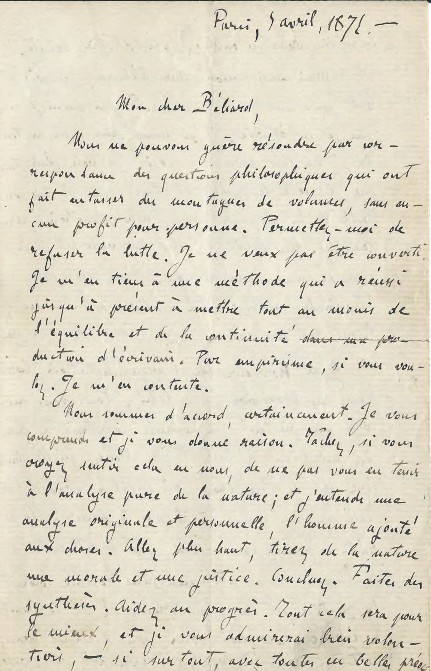 Paris, 5 avril, 1871. —
Mon cher Béliard,
Nous ne pouvons guère résoudre par cor-
respondance des questions philosophiques qui ont
fait entasser des montagnes de volumes, sans au-
cun profit pour personne. Permettez-moi de
refuser la lutte. Je ne veux pas être converti.
Je m'en tiens à une méthode qui a réussi
jusqu'à présent à mettre tout au moins de
l'équilibre et de la continuité dans ma pro-
duction d'écrivain. Pur empirisme, si vous vou-
lez. Je m'en contente.
Nous sommes d'accord, certainement. Je vous
comprends et je vous donne raison. Tâchez, si vous
croyez sentir cela en vous, de ne pas vous en tenir
à l'analyse pure de la nature; et j'entends une
analyse originale et personnelle, l'homme ajouté
aux choses. Allez plus haut, tirez de la nature
une morale et une justice. Concluez. Faites des
synthèses. Aidez au progrès. Tout cela sera pour
le mieux, et je vous admirerai bien volon-
tiers, — si surtout, avec toutes ces belles